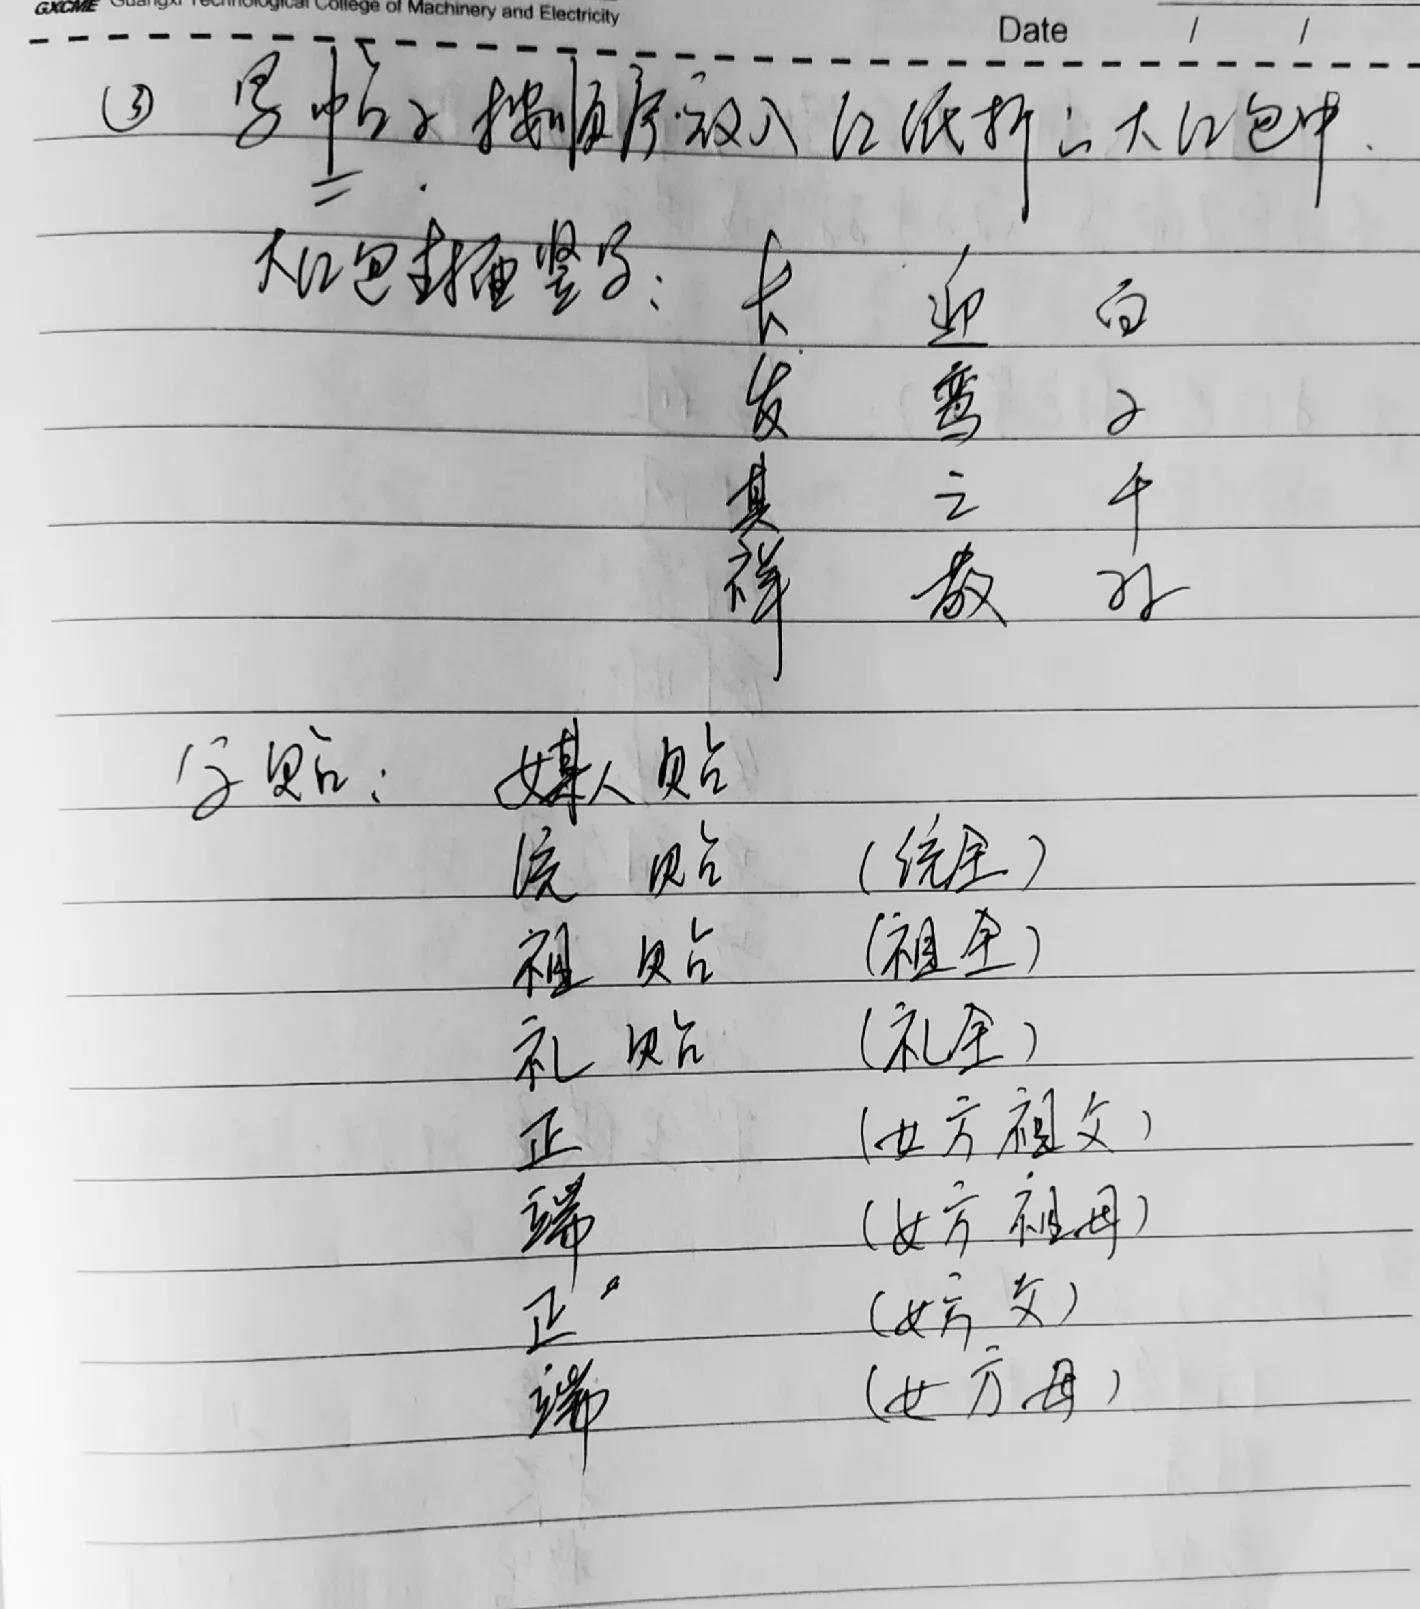 GXCME Guangxi Technological College of Machinery and Electricity
Date / /
③ 写帖子按顺序放入红纸折之大红包中.
大红包封面竖写:
长 迎 百
发 鸾 子
其 之 千
祥 敬 孙
字贴: 媒人贴
统 贴 (统全)
祖 贴 (祖全)
礼 贴 (礼全)
正 (女方祖父)
端 (女方祖母)
正 (女方父)
端 (女方母)